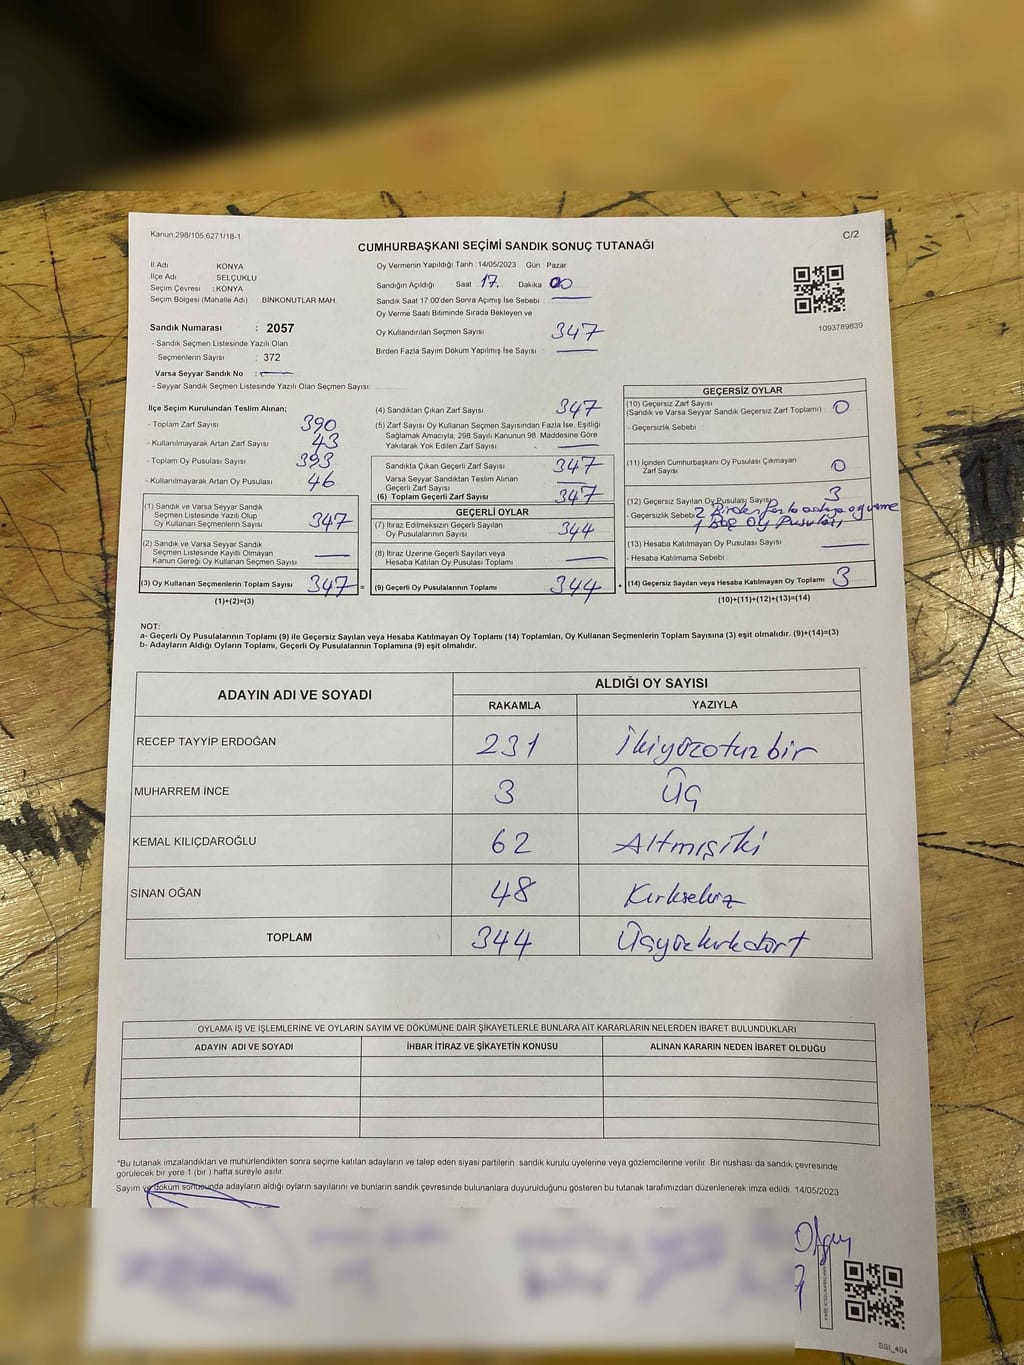 Kanun,298/105,6271/18-1
C/2
CUMHURBAŞKANI SEÇİMİ SANDIK SONUÇ TUTANAĞI
İl Adı KONYA
İlçe Adı SELÇUKLU
Seçim Çevresi : KONYA
Seçim Bölgesi (Mahalle Adı) : BİNKONUTLAR MAH.
Sandık Numarası : 2057
- Sandık Seçmen Listesinde Yazılı Olan
Seçmenlerin Sayısı : 372
Varsa Seyyar Sandık No :
- Seyyar Sandık Seçmen Listesinde Yazılı Olan Seçmen Sayısı
Oy Vermenin Yapıldığı Tarih : 14/05/2023 Gün : Pazar
Sandığın Açıldığı Saat 17. Dakika : 00
Sandık Saat 17:00'den Sonra Açımış İse Sebebi :
Oy Verme Saati Bitiminde Sırada Bekleyen ve
Oy Kullandırılan Seçmen Sayısı 347
Birden Fazla Sayım Döküm Yapılmış İse Sayısı
1093789839
İlçe Seçim Kurulundan Teslim Alınan;
- Toplam Zarf Sayısı 390
- Kullanılmayarak Artan Zarf Sayısı 43
- Toplam Oy Pusulası Sayısı 393
- Kullanılmayarak Artan Oy Pusulası 46
(1) Sandık ve Varsa Seyyar Sandık
Seçmen Listesinde Yazılı Olup
Oy Kullanan Seçmenlerin Sayısı 347
(2) Sandık ve Varsa Seyyar Sandık
Seçmen Listesinde Kayıtlı Olmayan
Kanun Gereği Oy Kullanan Seçmen Sayısı
(3) Oy Kullanan Seçmenlerin Toplam Sayısı 347 =
(1)+(2)=(3)
(4) Sandıktan Çıkan Zarf Sayısı 347
(5) Zarf Sayısı Oy Kullanan Seçmen Sayısından Fazla İse, Eşitliği
Sağlamak Amacıyla, 298 Sayılı Kanunun 98. Maddesine Göre
Yakılarak Yok Edilen Zarf Sayısı
Sandıkta Çıkan Geçerli Zarf Sayısı 347
Varsa Seyyar Sandıktan Teslim Alınan
Geçerli Zarf Sayısı
(6) Toplam Geçerli Zarf Sayısı 347
GEÇERLİ OYLAR
(7) İtiraz Edilmeksizin Geçerli Sayılan
Oy Pusulalarının Sayısı 344
(8) İtiraz Üzerine Geçerli Sayılan veya
Hesaba Katılan Oy Pusulası Toplamı
(9) Geçerli Oy Pusulalarının Toplamı 344 +
GEÇERSİZ OYLAR
(10) Geçersiz Zarf Sayısı
(Sandık ve Varsa Seyyar Sandık Geçersiz Zarf Toplamı) 0
- Geçersizlik Sebebi :
(11) İçinden Cumhurbaşkanı Oy Pusulası Çıkmayan
Zarf Sayısı 0
(12) Geçersiz Sayılan Oy Pusulası Sayısı 3
- Geçersizlik Sebebi 2 Birden fazla adaya oy verme
1 Boş Oy Pusulası
(13) Hesaba Katılmayan Oy Pusulası Sayısı
- Hesaba Katılmama Sebebi :
(14) Geçersiz Sayılan veya Hesaba Katılmayan Oy Toplamı 3
(10)+(11)+(12)+(13)=(14)
NOT:
a- Geçerli Oy Pusulalarının Toplamı (9) ile Geçersiz Sayılan veya Hesaba Katılmayan Oy Toplamı (14) Toplamları, Oy Kullanan Seçmenlerin Toplam Sayısına (3) eşit olmalıdır. (9)+(14)=(3)
b- Adayların Aldığı Oyların Toplamı, Geçerli Oy Pusulalarının Toplamına (9) eşit olmalıdır.
ADAYIN ADI VE SOYADI
ALDIĞI OY SAYISI
RAKAMLA YAZIYLA
RECEP TAYYİP ERDOĞAN 231 İkiyüzotuzbir
MUHARREM İNCE 3 Üç
KEMAL KILIÇDAROĞLU 62 Altmışiki
SİNAN OĞAN 48 Kırksekiz
TOPLAM 344 Üçyüzkırkdört
OYLAMA İŞ VE İŞLEMLERİNE VE OYLARIN SAYIM VE DÖKÜMÜNE DAİR ŞİKAYETLERLE BUNLARA AİT KARARLARIN NELERDEN İBARET BULUNDUKLARI
ADAYIN ADI VE SOYADI İHBAR İTİRAZ VE ŞİKAYETİN KONUSU ALINAN KARARIN NEDEN İBARET OLDUĞU
*Bu tutanak imzalandıktan ve mühürlendikten sonra seçime katılan adayların ve talep eden siyasi partilerin sandık kurulu üyelerine veya gözlemcilerine verilir. Bir nüshası da sandık çevresinde
görülecek bir yere 1 (bir ) hafta süreyle asılır.
Sayım ve döküm sonucunda adayların aldığı oyların sayılarını ve bunların sandık çevresinde bulunanlara duyurulduğunu gösteren bu tutanak tarafımızdan düzenlenerek imza edildi. 14/05/2023
SSI_404